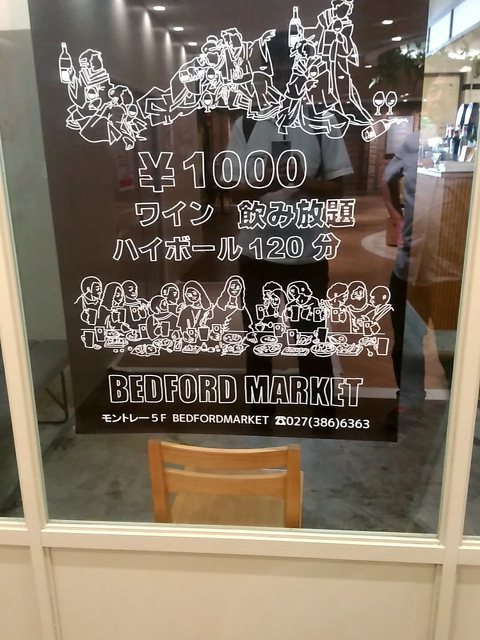 ¥1000
ワイン 飲み放題
ハイボール 120分
BEDFORD MARKET
モントレー5F BEDFORDMARKET ☎027(386)6363